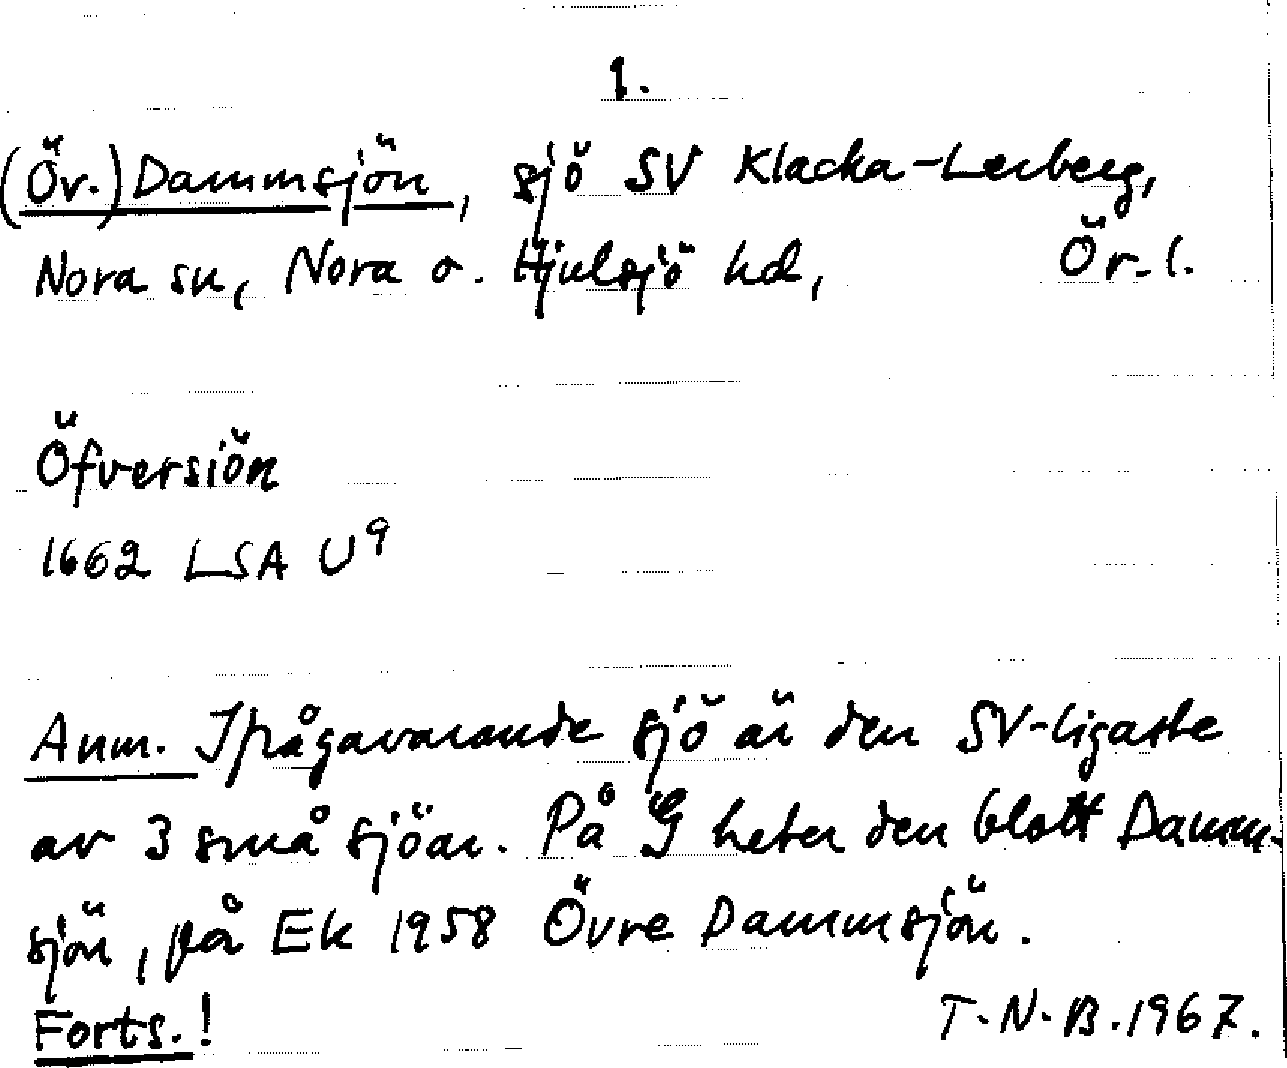 1.
(Öv.) Dammsjön, sjö SV Klacka-Lerberg,
Nora sn, Nora o. Hjulsjö hd, Ör. l.
Öfversiön
1662 LSA U9
Anm. Ifrågavarande sjö är den SV-ligaste
av 3 små sjöar. På G heter den blott Damm-
sjön, på Ek 1958 Övre Dammsjön.
Forts.! T.N.B. 1967.